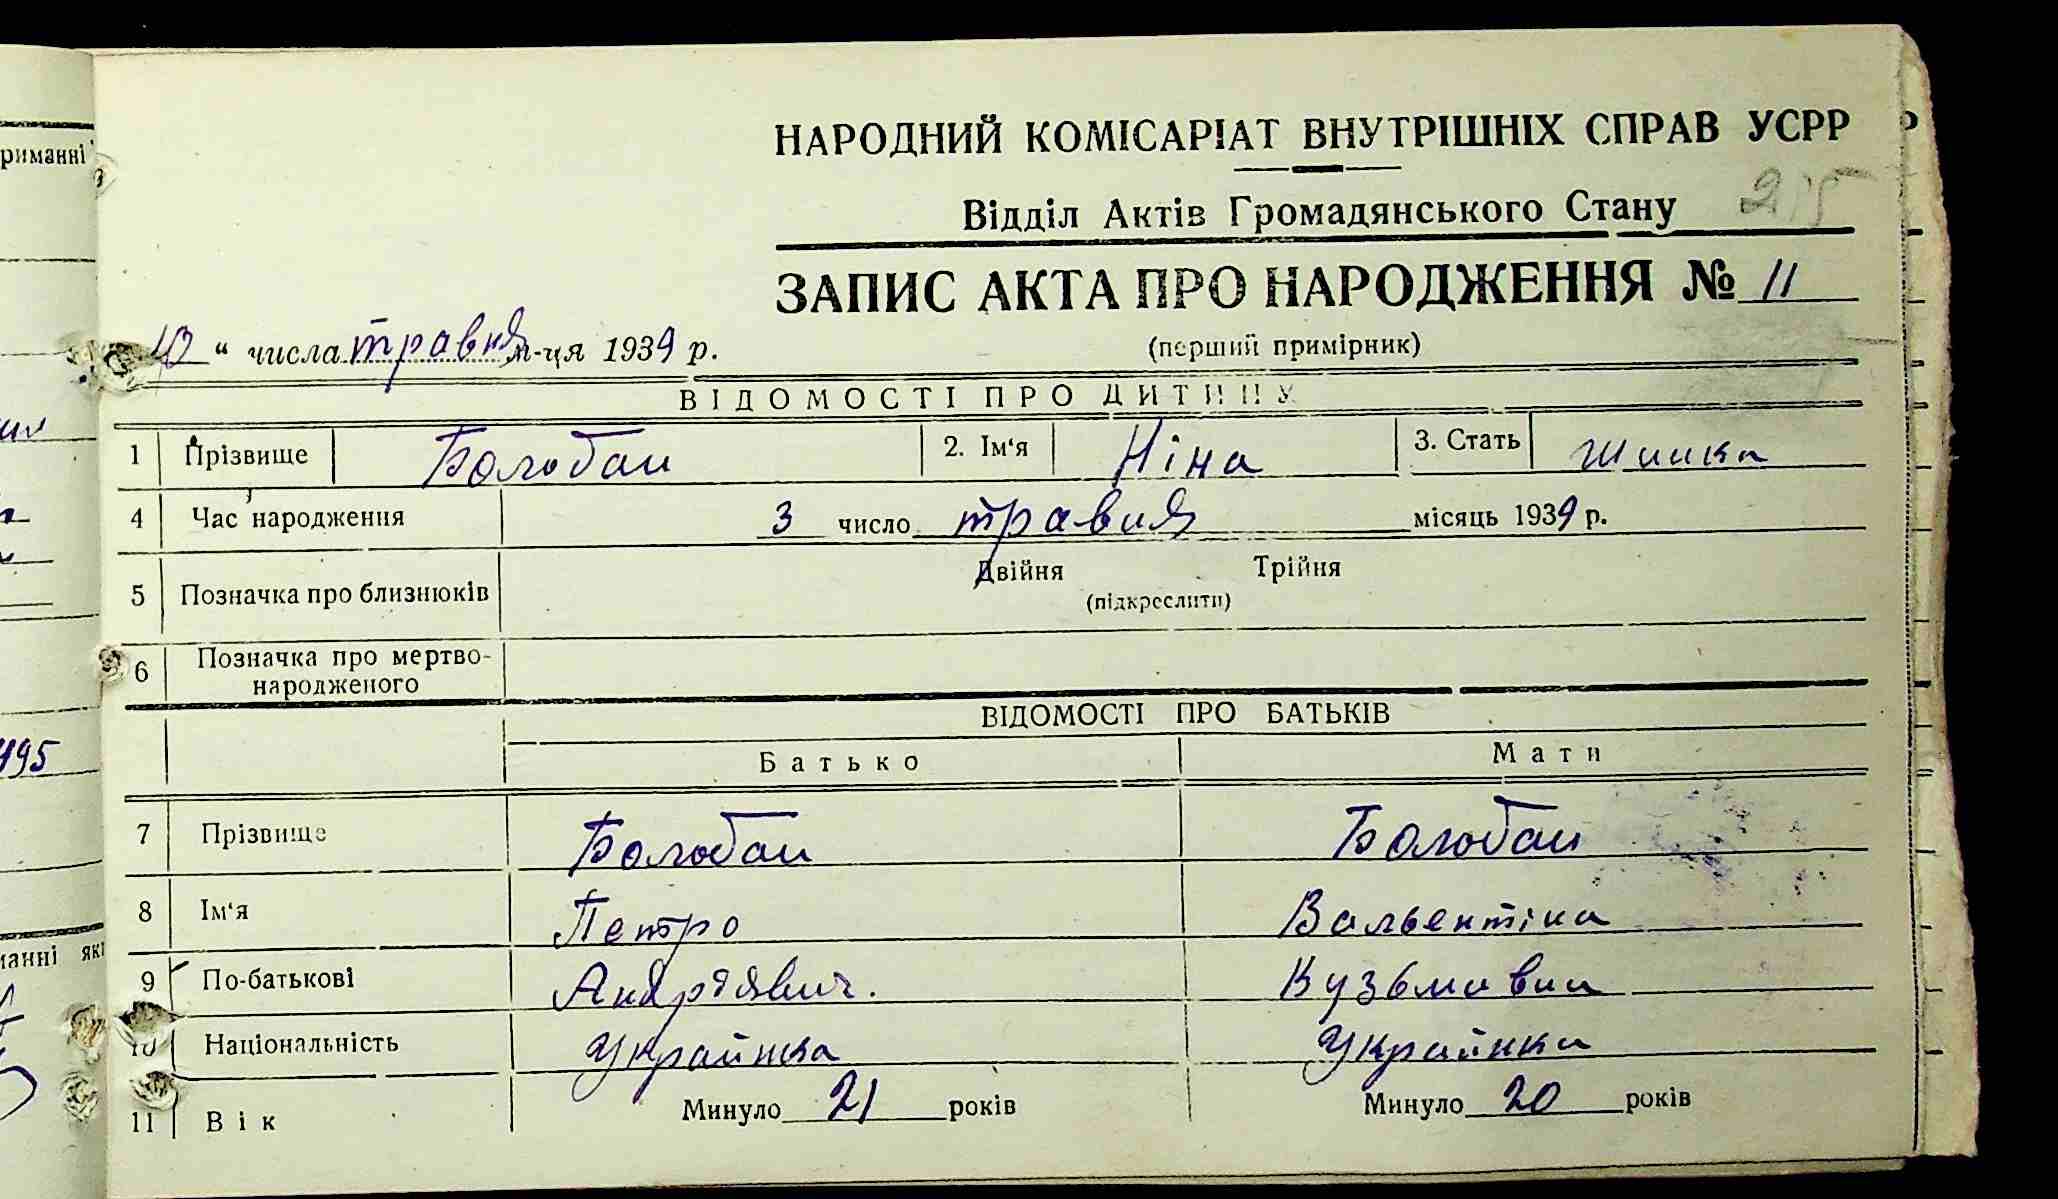 НАРОДНИЙ КОМІСАРІАТ ВНУТРІШНІХ СПРАВ УСРР
Відділ Актів Громадянського Стану 215
ЗАПИС АКТА ПРО НАРОДЖЕННЯ № 11
10 “ числа травня м-ця 1939 р.
(перший примірник)
ВІДОМОСТІ ПРО ДИТИНУ
1 Прізвище Болобан 2. Ім‘я Ніна 3. Стать
4 Час народження 3 число травня місяць 1939 р.
Двійня Трійня
5 Позначка про близнюків (підкреслити)
6 Позначка про мертво-
народженого
ВІДОМОСТІ ПРО БАТЬКІВ
Батько Мати
7 Прізвище Болобан Болобан
8 Ім‘я Петро Вальентіна
9 По-батькові Кузьмовна
10 Національність Українка Українка
11 Вік Минуло 21 років Минуло 20 років
риманні
495
манні які